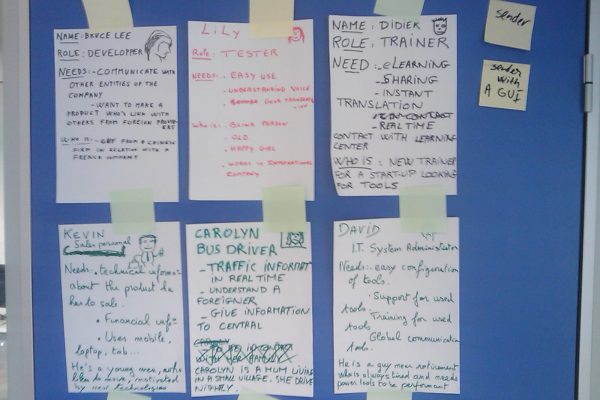 NAME: BRUCE LEE
ROLE: DEVELOPPER
NEEDS: - COMMUNICATE WITH
OTHER ENTITIES OF THE
COMPANY
- WANT TO MAKE A
PRODUCT WHO'S LINK WITH
OTHERS FROM FOREIGN
WHO IS: - GUY FROM A CHINESE
FIRM IN RELATION WITH A
FRENCH COMPANY
LiLy
Role: TESTER
NEEDS: - EASY USE
- UNDERSTANDING VOICE
Who is: - BLIND PERSON
- OLD
- HAPPY GIRL
- WORKS IN INTERNATIONAL
COMPANY
NAME: DIDIER
ROLE: TRAINER
NEED: - eLEARNING
- SHARING
- INSTANT
TRANSLATION
- REAL TIME
CONTACT WITH LEARNING
CENTER
WHO IS: NEW TRAINER
FOR A START-UP LOOKING
FOR TOOLS
sender
sender
with
A GUI
KEVIN
Sales personal
Needs: . technical informa-
about the product he
has to sale.
. Financial info
. Uses mobile,
laptop, tab...
He's a young man,
like to move, motivated
by new technologies
CAROLYN
BUS DRIVER
- TRAFFIC INFORMAT
IN REAL TIME
- UNDERSTAND A
FOREIGNER
- GIVE INFORMATION
TO CENTRAL
CAROLYN IS A MUM LIVING
IN A SMALL VILLAGE. SHE DRIVE
NIGHTLY.
DAVID
I.T. System Administrator
Needs: . easy configuration
of tools.
. Support for used
tools.
. Training for used
tools.
. Global communication
tools.
He is a guy near retirement
who is always tired and needs
power tools to be performant